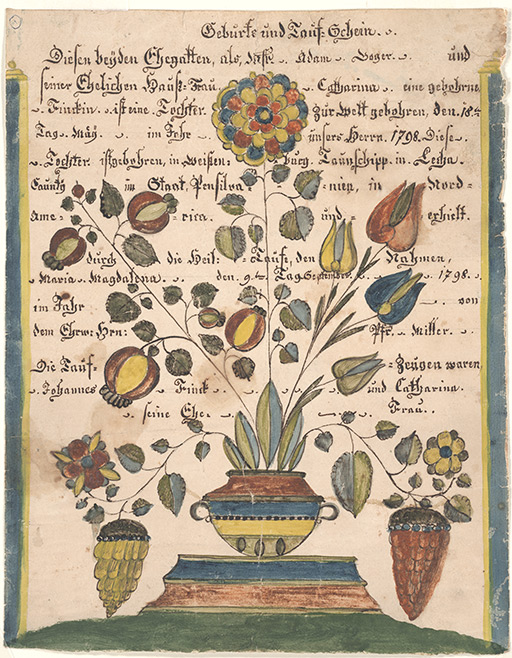 Geburts und Tauf-Schein.
Diesen beyden Ehegatten, als, Adam Voger. und
seiner Ehelichen Hauß-Frau Catharina eine gebohrne
Finckin ist eine Tochter zur Welt gebohren, den 18te
Tag May im Jahr unsers Herrn. 1798. Diese
Tochter ist gebohren, in Weißen- burg. Taunschipp. in Lecha
Caundy im Staat, Pensilva- nien, in Nord-
ame- rica. und erhielt.
durch die Heil: Taufe, den Nahmen,
Maria Magdalena. den 9te Tag September 1798.
im Jahr von
dem Ehrw: Hrn: Pfr. Miller.
Die Tauf- Zeugen waren
Johannes Finck und Catharina.
seine Ehe- Frau.